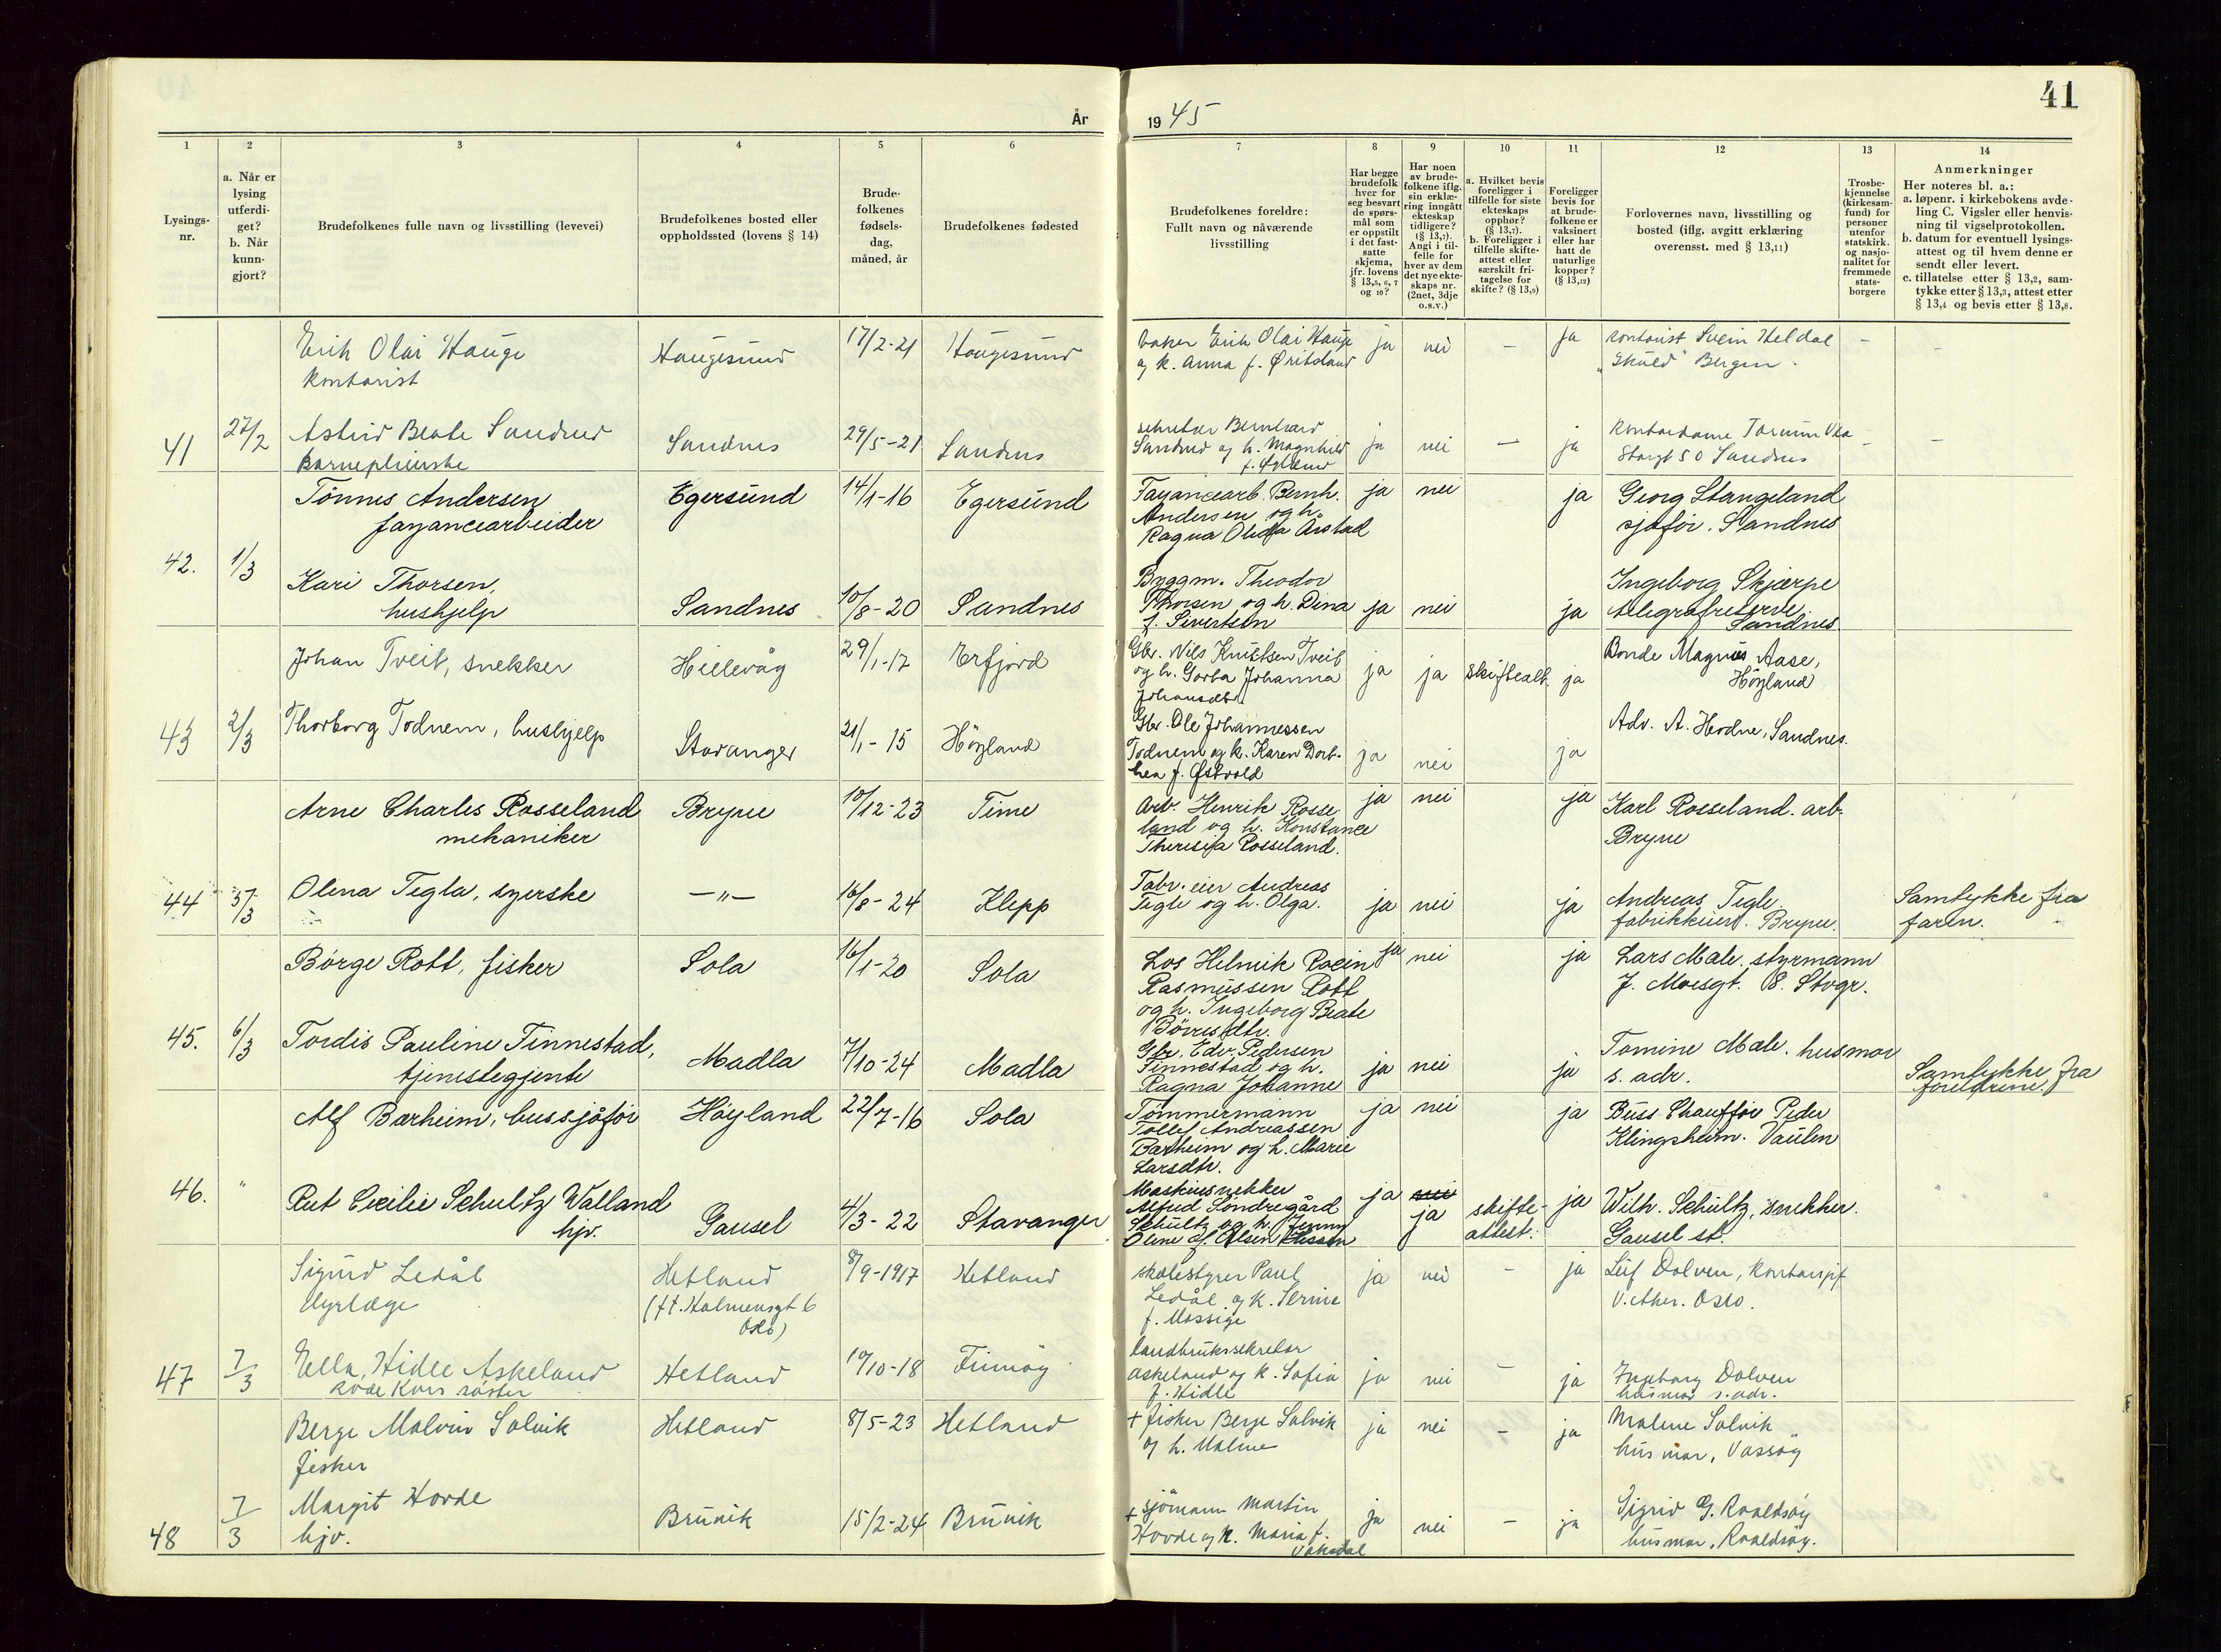 År 19 45
41
1 2 3 4 5 6 7 8 9 10 11 12 13 14
Lysings-
nr.
a. Når er
lysing
utferdi-
get?
b. Når
kunn-
gjort?
Brudefolkenes fulle navn og livsstilling (levevei)
Brudefolkenes bosted eller
oppholdssted (lovens § 14)
Brude-
folkenes
fødsels-
dag,
måned, år
Brudefolkenes fødested
Brudefolkenes foreldre:
Fullt navn og nåværende
livsstilling
Har begge
brudefolk
hver for
seg besvart
de spørs-
mål som
er oppstilt
i det fast-
satte
skjema,
jfr. lovens
§ 13,5, 6, 7
og 10?
Har noen
av brude-
folkene iflg.
sin erklæ-
ring inngått
ekteskap
tidligere?
(§ 13,7).
Angi i til-
felle for
hver av dem
det nye ekte-
skaps nr.
(2net, 3dje
o.s.v.)
a. Hvilket bevis
foreligger i
tilfelle for siste
ekteskaps
opphør?
(§ 13,7).
b. Foreligger i
tilfelle skifte-
attest eller
særskilt fri-
tagelse for
skifte? (§ 13,9)
Foreligger
bevis for
at brude-
folkene er
vaksinert
eller har
hatt de
naturlige
kopper?
(§ 13,12)
Forlovernes navn, livsstilling og
bosted (iflg. avgitt erklæring
overensst. med § 13,11)
Trosbe-
kjennelse
(kirkesam-
fund) for
personer
utenfor
statskirk.
og nasjo-
nalitet for
fremmede
stats-
borgere
Anmerkninger
Her noteres bl. a.:
a. løpenr. i kirkebokens avde-
ling C. Vigsler eller henvis-
ning til vigselprotokollen.
b. datum for eventuell lysings-
attest og til hvem denne er
sendt eller levert.
c. tillatelse etter § 13,2, sam-
tykke etter § 13,3, attest etter
§ 13,4 og bevis etter § 13,8.
Erik Olai Hauge
kontorist
Haugesund 17/2-21 Haugesund
baker Erik Olai Hauge
og k. Anna f. Øritsland
ja nei — ja
kontorist Svein Heldal
"Skuld" Bergen.
— —
41 27/2 Astrid Beate Sandrud
Barnepleierske
Sandnes 29/5-21 Sandnes
sekretær Bernhard
Sandrud og h. Magnhild
ja nei — ja
Kontordame Torunn
Storgt 50 Sandnes
— —
Tönnes Andersen
fayancearbeider
Egersund 14/1-16 Egersund
Fayancearb. Bernh.
Andersen og h.
Ragna Olida Årstad
ja nei ja
Georg Stangeland
sjåför. Sandnes
42. 1/3 Kari Thorsen,
hushjelp
Sandnes 10/8-20 Sandnes
Byggm. Theodor
Thorsen og h. Dina
f. Sivertsen
ja nei ja
Ingeborg Skjærpe
telegrafreserve
Sandnes
Johan Tveit, snekker
Hillevåg 29/1-17 Erfjord
Gbr. Nils Knutsen Tveit
og h. Gorba Johanna
Johansdtr
ja ja skifteatt. ja
Bonde Magnus Aase,
Höyland
43 2/3 Thorborg Todnem, hushjelp
Stavanger 21/1-15 Höyland
Gbr. Ole Johannessen
Todnem og k. Karen Dort-
hea f. Østvold
ja nei ja
Adv. A. Hodne, Sandnes.
Arne Charles Rosseland
mekaniker
Bryne 10/12-23 Time
Arb. Henrik Rosse-
land og h. Konstance
Theresia Rosseland.
ja nei ja
Karl Rosseland. arb.
Bryne
44 5/3 Olena Tegla, syerske
—"— 16/8-24 Klepp
Fabr. eier Andreas
Tegle og h. Olga.
ja nei ja
Andreas Tegle.
fabrikkeier. Bryne.
Samtykke fra
faren.
Börge Rott, fisker
Sola 16/1-20 Sola
Los Helmik Rasmussen Rott
og h. Ingeborg Beate
ja nei ja
Lars Male. styrmann
J. Moesgt. 8. Stvgr.
45. 6/3 Tordis Pauline Tinnestad,
tjenestegjente
Madla 7/10-24 Madla
Gbr. Edv. Pedersen
Finnestad og h.
Ragna Johanne
ja nei ja
Tomine Male. husmor
s. adr.
Samtykke fra
foreldrene.
Alf Barheim, bussjåför
Höyland 22/7-16 Sola
Tömmermann
Tollef Andreassen
Barheim og h. Marie
Larsdtr.
ja nei ja
Buss Chauffør Peder
Klingsheim. Vaulen
46. " Rut Cecilie Schultz Walland
hjv.
Gausel 4/3-22 Stavanger
Maskinsnekker
Alfred Söndregård
Schultz og h. Jenny
Oline f. Olsen
ja nei
ja skifte-
attest. ja
Wilh. Schultz, snekker.
Gausel st.
Sigurd Ledål
dyrlæge
Hetland
(f.t. Holmensgt 6
Oslo)
8/9-1917 Hetland
skolestyrer Paul
Ledål og k. Serine
f. Mossige
ja nei — ja
Leif Dolven, kontorsjef
V. Aker. Oslo.
47 7/3 Ella Hidle Askeland
Röde Kors söster
Hetland 10/10-18 Finnöy
landbrukssekretær
Askeland og k. Sofia
f. Hidle
ja nei — ja
Ingeborg Dolven
husmor s. adr.
Berge Malvin Solvik
fisker
Hetland 8/5-23 Hetland
+ fisker Berge Solvik
og h. Malene
ja nei — ja
Malene Solvik
husmor, Vassöy
48 7/3 Margit Hovde
hjv.
Bruvik 15/2-24 Bruvik
+ sjömann Martin
Hovde og k. Maria f.
Vaksdal
ja nei — ja
Sigrid G. Roaldsöy
husmor, Roaldsöy.